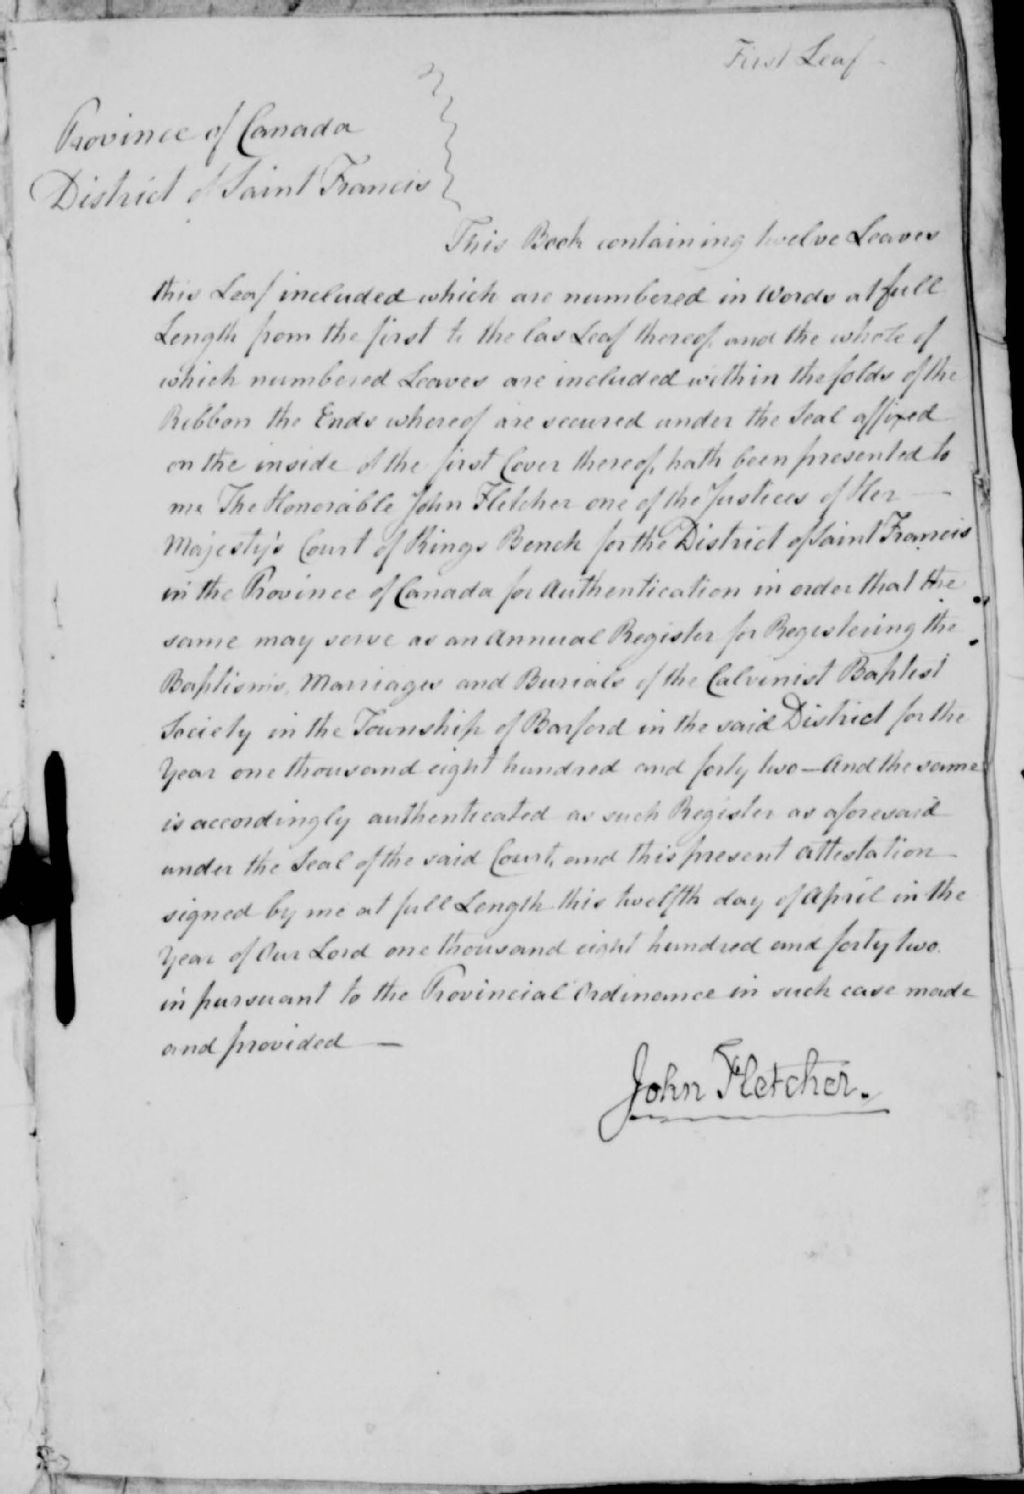 First Leaf
Province of Canada
District of Saint Francis
This Book containing twelve Leaves
this Leaf included which are numbered in Words at full
Length from the first to the las Leaf thereof, and the whole of
which numbered Leaves are included within the folds of the
Ribbon the Ends whereof are secured under the Seal affixed
on the inside of the first Cover thereof, hath been presented to
me The Honorable John Fletcher one of the Justices of Her
Majesty's Court of Kings Bench for the District of Saint Francis
in the Province of Canada for Authentication in order that the
same may serve as an Annual Register for Registering the
Baptisms, Marriages and Burials of the Calvinist Baptist
Society in the Township of Barford in the said District for the
Year one thousand eight hundred and forty two — And the same
is accordingly authenticated as such Register as aforesaid
under the Seal of the said Court, and this present attestation
signed by me at full Length this twelfth day of April in the
Year of Our Lord one thousand eight hundred and forty two.
in pursuant to the Provincial Ordinance in such case made
and provided —
John Fletcher.